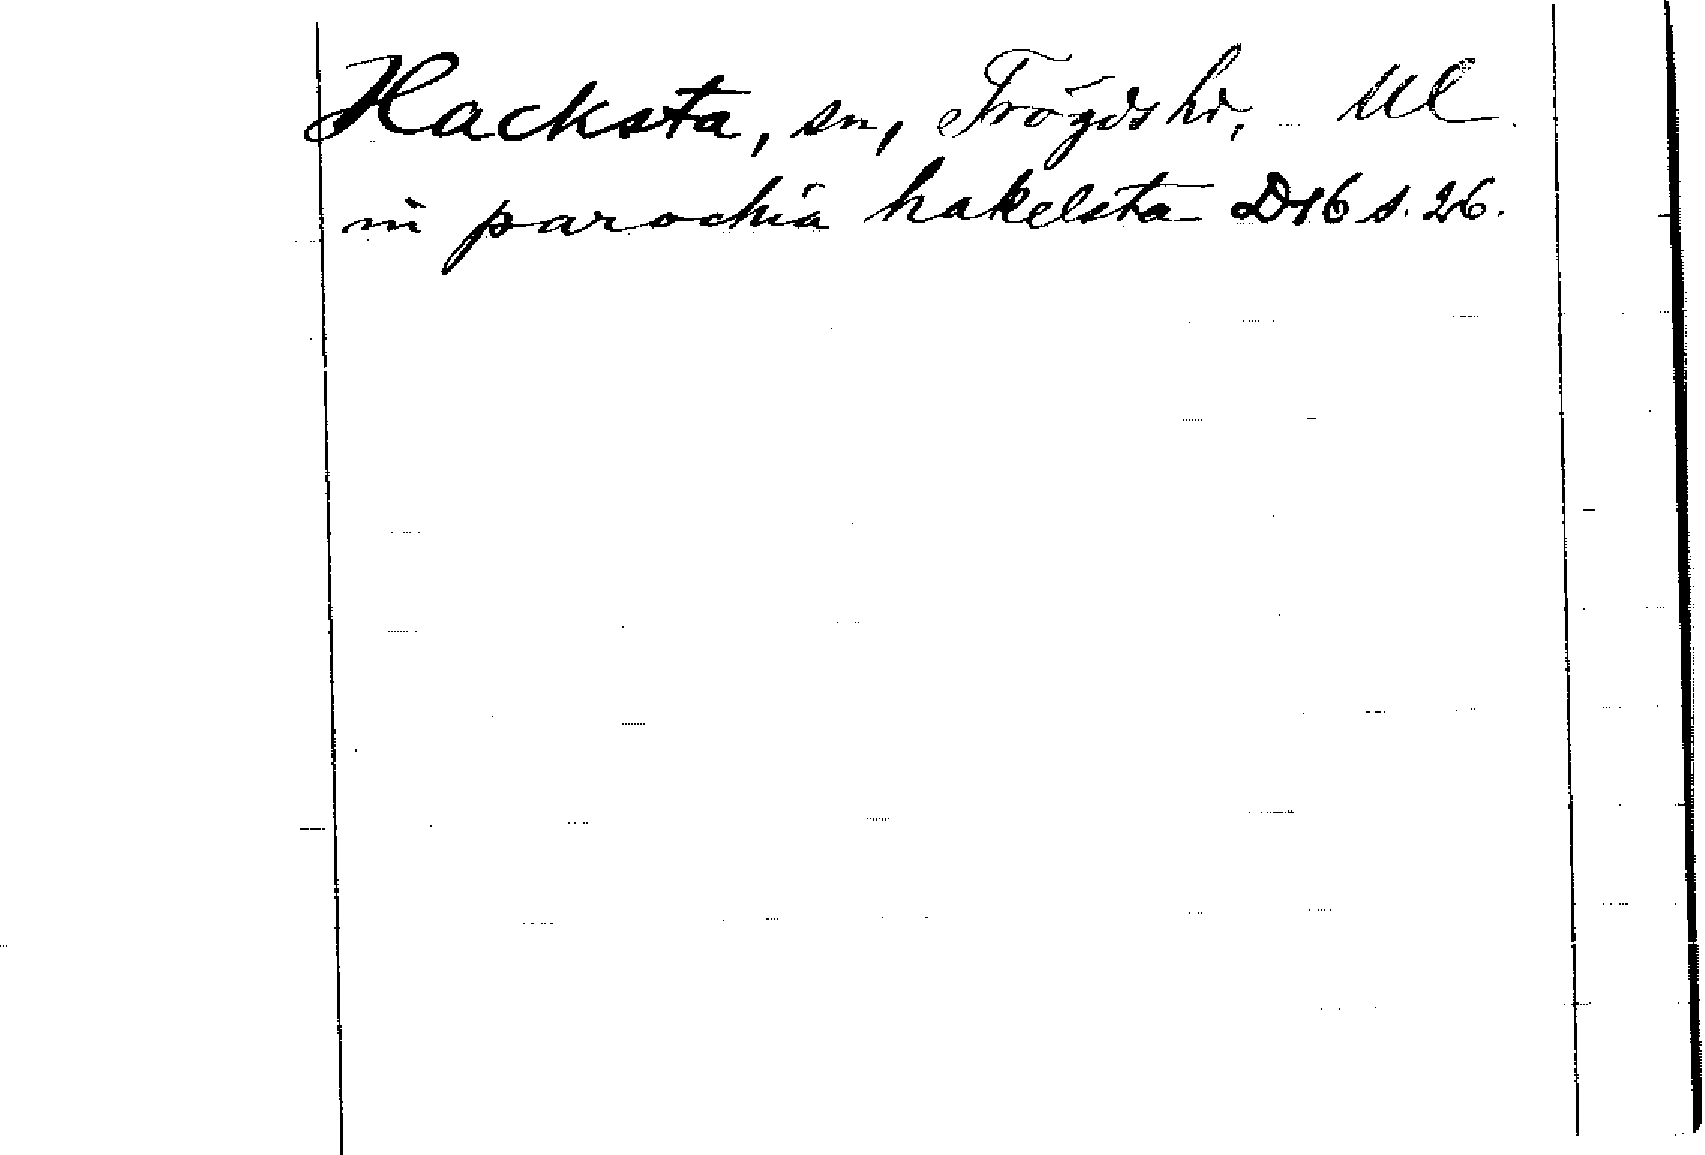 Hacksta, sn, Trögds hd, Ul
in parochia hakelsta D16 s. 26.